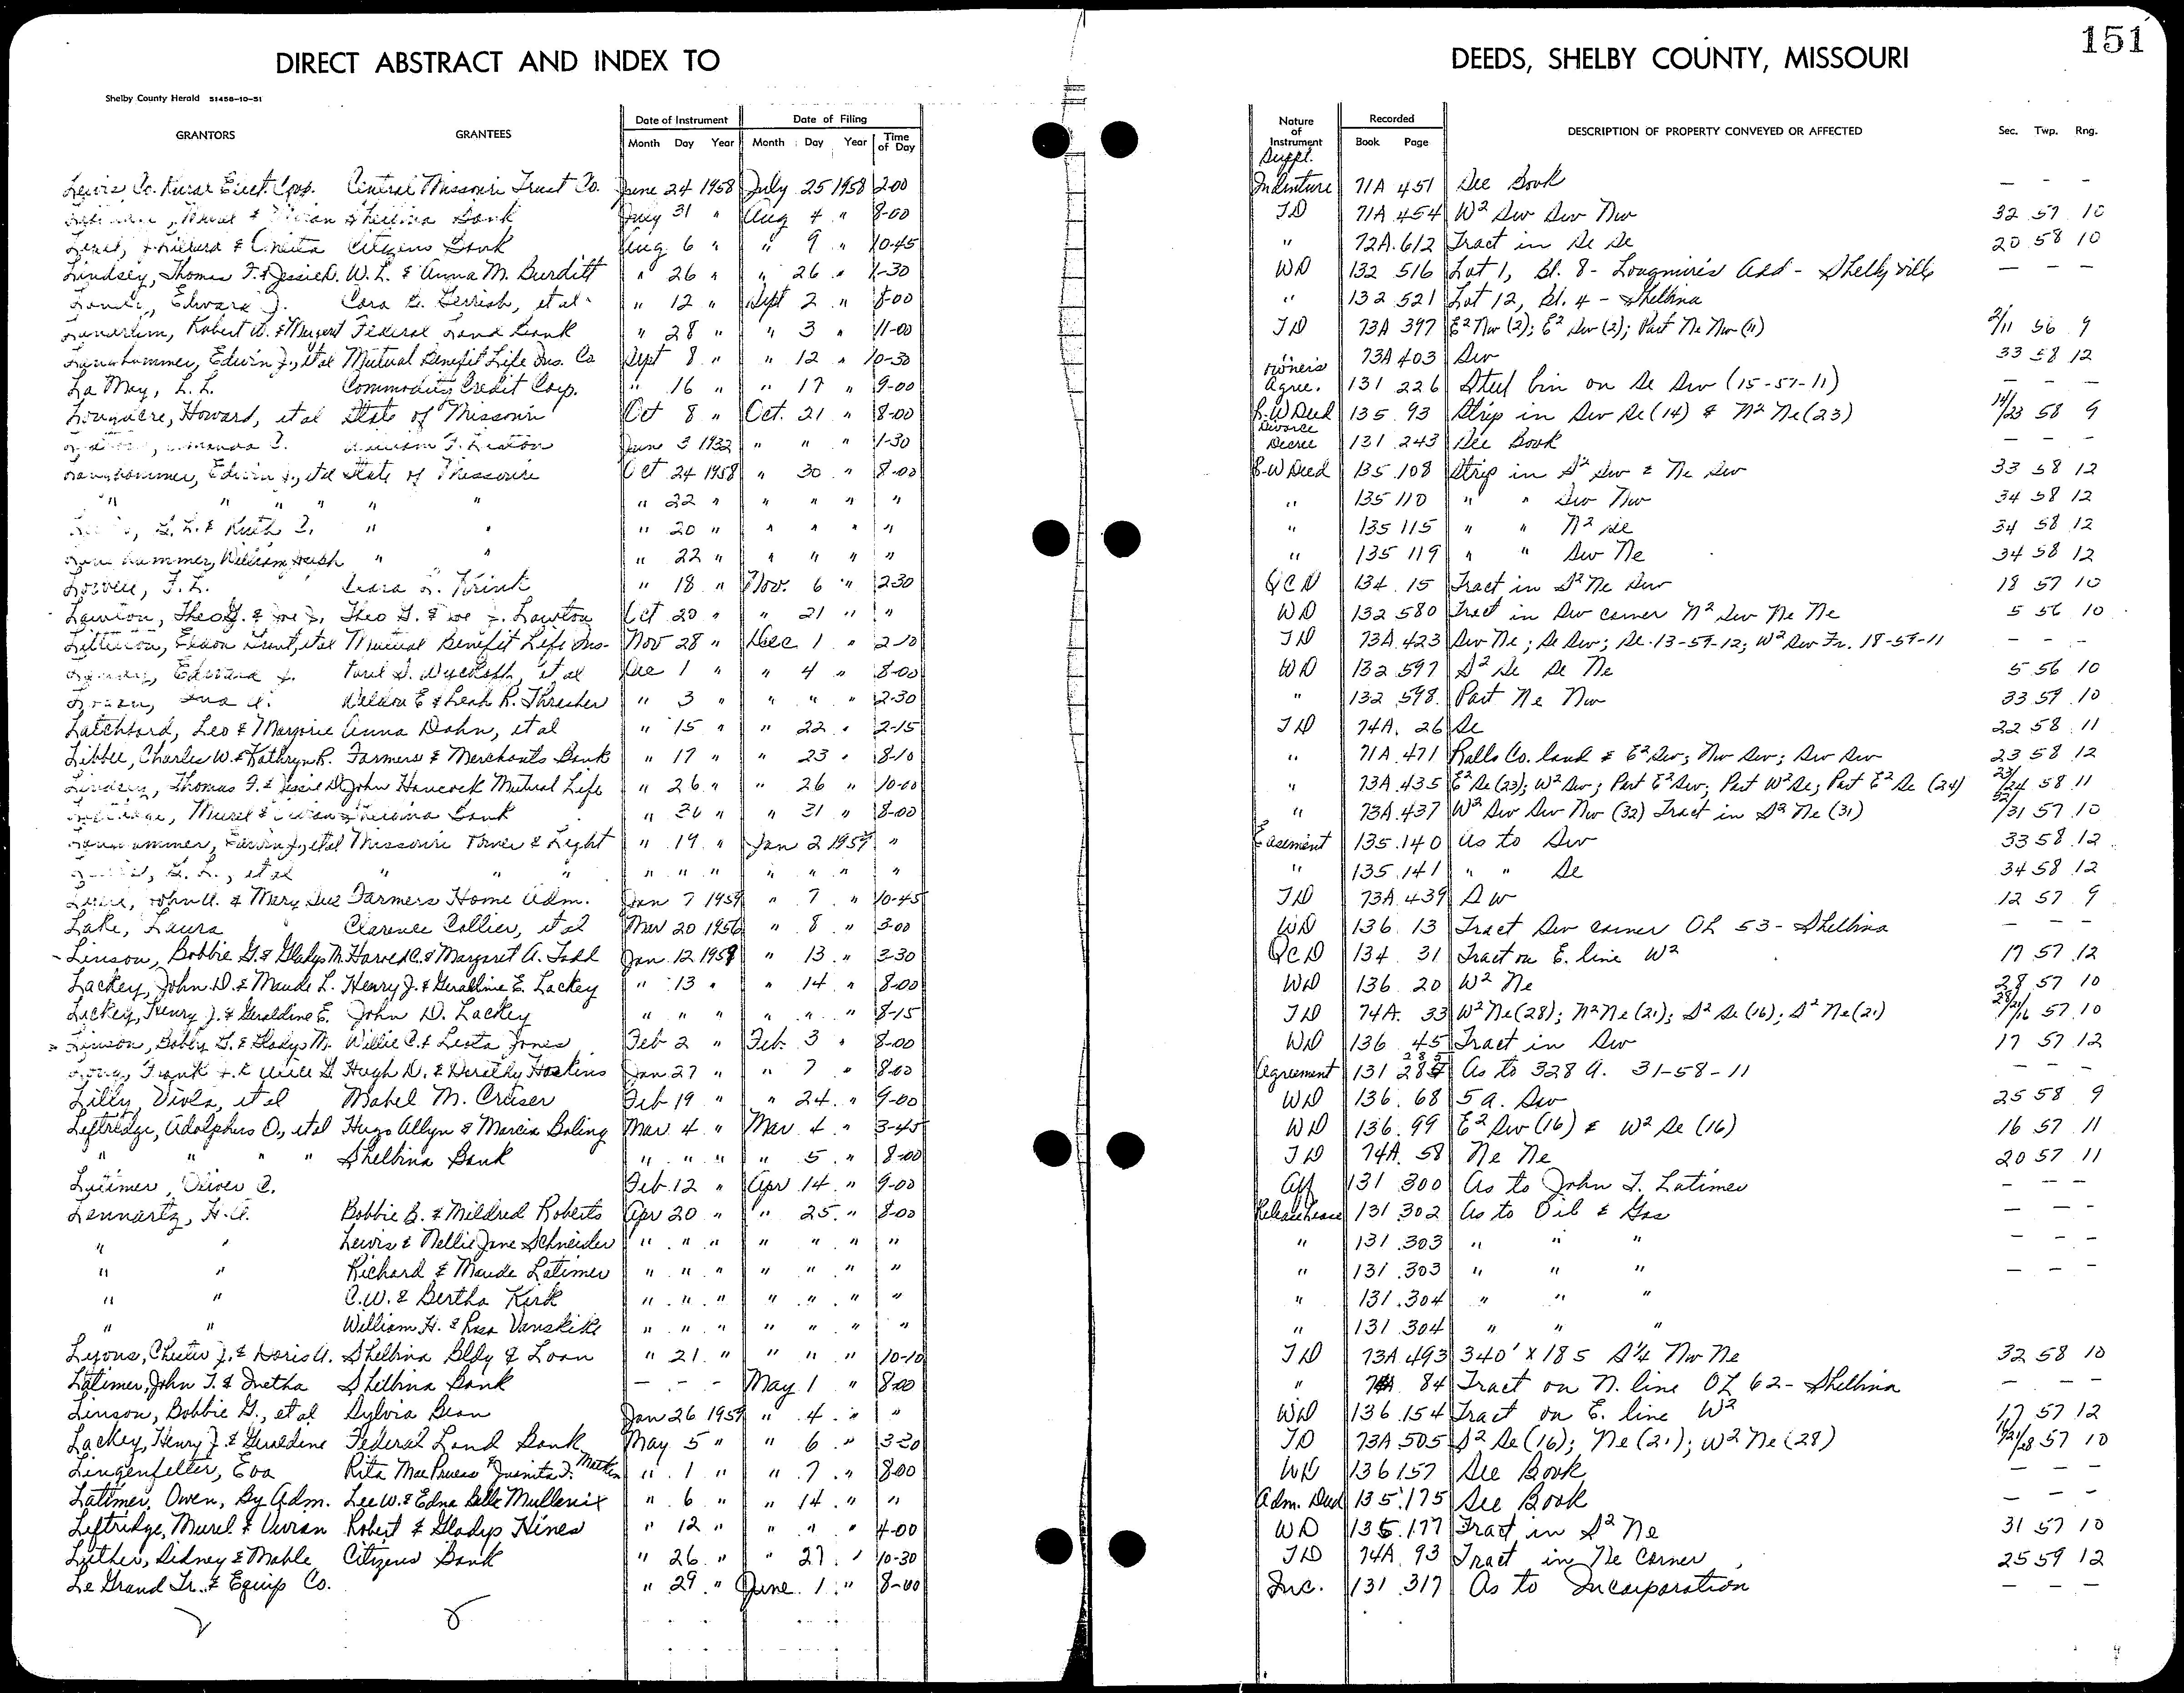 151
DIRECT ABSTRACT AND INDEX TO DEEDS, SHELBY COUNTY, MISSOURI
Shelby County Herald 51458-10-51
GRANTORS GRANTEES Date of Instrument Date of Filing Nature of Instrument Recorded DESCRIPTION OF PROPERTY CONVEYED OR AFFECTED Sec. Twp. Rng.
Month Day Year Month Day Year Time of Day Book Page
Lewis Co. Rural Elect. Coop. Central Missouri Trust Co. June 24 1958 July 25 1958 2-00 Suppl. Indenture 71A 451 See Book — — —
Shelbina Bank July 31 " Aug 4 " 8-00 TD 71A 454 W² Sw Sw Nw 32 57 10
Citizens Bank Aug 6 " " 9 " 10-45 " 72A 612 Tract in Se Se 20 58 10
Lindsey, Thomas F. & Jessie D. W. L. & Anna M. Burditt " 26 " " 26 " 1-30 WD 132 516 Lot 1, Bl. 8 - Longmire's Add - Shelbyville — — —
Edward J. Cora B. Gerrish, et al " 12 " Sept 2 " 8-00 " 132 521 Lot 12, Bl. 4 - Shelbina
Robert W. & Margaret Federal Land Bank " 28 " " 3 " 11-00 TD 73A 397 E² Nw (2); E² Sw (2); Part Ne Nw (11) 2/11 56 9
Langhammer, Edwin J., et al Mutual Benefit Life Ins. Co Sept 8 " " 12 " 10-30 " 73A 403 Sw 33 58 12
La May, L. L. Commodity Credit Corp. " 16 " " 17 " 9-00 Owners Agree. 131 226 Steel bin on Se Sw (15-57-11) — — —
Longacre, Howard, et al State of Missouri Oct 8 " Oct. 21 " 8-00 R-W Deed 135 93 Strip in Sw Se (14) & N² Ne (23) 14/23 58 9
June 3 1932 " " " 1-30 Divorce Decree 131 243 See Book — — —
Langhammer, Edwin J., et al State of Missouri Oct 24 1958 " 30 " 8-00 R-W Deed 135 108 Strip in S² Sw & Ne Sw 33 58 12
" " " " " " " 22 " " " " " " 135 110 " " Sw Nw 34 58 12
L. L. & Ruth " " " 20 " " " " " " 135 115 " " N² Se 34 58 12
Langhammer, William Hugh " " " 22 " " " " " " 135 119 " " Sw Ne 34 58 12
F. L. " 18 " Nov. 6 " 2-30 QCD 134 15 Tract in S² Ne Sw 18 57 10
Lawton, Theo G. & Theo G. & Lawton Oct 20 " " 21 " " WD 132 580 Tract in Sw corner N² Sw Ne Ne 5 56 10
Mutual Benefit Life Ins- Nov 28 " Dec 1 " 2-10 TD 73A 423 Sw Ne; Se Sw; Se 13-59-12; W² Sw Fr. 18-59-11 — — —
Edward J. et al Dec 1 " " 4 " 8-00 WD 132 597 S² Se Se Ne 5 56 10
Weldon E & Leah R. Thrasher " 3 " " " " 2-30 " 132 598 Part Ne Nw 33 59 10
Latchford, Leo & Marjorie Anna Dohn, et al " 15 " " 22 " 2-15 TD 74A 26 Se 22 58 11
Libbee, Charles W. & Kathryn R. Farmers & Merchants Bank " 17 " " 23 " 8-10 " 71A 471 Ralls Co. land & E² Sw; Nw Sw; Sw Sw 23 58 12
Lindsey, Thomas F. & Jessie D. John Hancock Mutual Life " 26 " " 26 " 10-00 " 73A 435 E² Se (23); W² Sw; Part E² Sw; Part W² Se; Part E² Se (24) 23/24 58 11
Shelbina Bank " 26 " " 31 " 8-00 " 73A 437 W² Sw Sw Nw (32) Tract in S² Ne (31) 32/31 57 10
Langhammer, Edwin J., et al Missouri Power & Light " 19 " Jan 2 1959 " Easement 135 140 As to Sw 33 58 12
L. L., et al " " " " " " " " " " " " 135 141 " " Se 34 58 12
John A. & Mary Sue Farmers Home Adm. Jan 7 1959 " 7 " 10-45 TD 73A 439 Sw 12 57 9
Lake, Laura Clarence Collier, et al Mar 20 1956 " 8 " 3-00 WD 136 13 Tract Sw corner OL 53 - Shelbina — — —
Linson, Bobbie G. & Gladys M. Harold C. & Margaret A. Todd Jan 12 1959 " 13 " 3-30 QCD 134 31 Tract on E. line W² 17 57 12
Lackey, John D. & Maude L. Henry J. & Geraldine E. Lackey " 13 " " 14 " 8-00 WD 136 20 W² Ne 28 57 10
Lackey, Henry J. & Geraldine E. John D. Lackey " " " " " " 8-15 TD 74A 33 W² Ne (28); N² Ne (21); S² Se (16); S² Ne (21) 28/21/16 57 10
Linson, Bobby G. & Gladys M. Willie C. & Leota Jones Feb 2 " Feb. 3 " 8-00 WD 136 45 Tract in Sw 17 57 12
Long, Frank Hugh D. & Dorothy Hoskins Jan 27 " " 7 " 8-00 Agreement 131 285 As to 328 A. 31-58-11 — — —
Lilly, Viola, et al Mabel M. Cruser Feb 19 " " 24 " 9-00 WD 136 68 5 A. Sw 25 58 9
Leftridge, Adolphus O., et al Hugo Allyn & Marcia Boling Mar 4 " Mar 4 " 3-45 WD 136 99 E² Sw (16) & W² Se (16) 16 57 11
" " " " Shelbina Bank " " " " 5 " 8-00 TD 74A 58 Ne Ne 20 57 11
Latimer, Oliver C. Feb 12 " Apr 14 " 9-00 Aff 131 300 As to John T. Latimer — — —
Lennartz, H.A. Bobbie B. & Mildred Roberts Apr 20 " " 25 " 8-00 Release Lease 131 302 As to Oil & Gas — — —
" " Lewis & Nellie Jane Schneider " " " " " " " " 131 303 " " " — — —
" " Richard & Maude Latimer " " " " " " " " 131 303 " " " — — —
" " C.W. & Bertha Kirk " " " " " " " " 131 304 " " "
" " William H. & Rosa Vanskike " " " " " " " " 131 304 " " "
Lyons, Chester J. & Doris A. Shelbina Bldg & Loan " 21 " " " " 10-10 TD 73A 493 340' x 185 S¼ Nw Ne 32 58 10
Latimer, John T. & Inetha Shelbina Bank — — — May 1 " 8-00 " 84 Tract on N. line OL 62 - Shelbina — — —
Linson, Bobbie G., et al Sylvia Bean Jan 26 1959 " 4 " " WD 136 154 Tract on E. line W² 17 57 12
Lackey, Henry J. & Geraldine Federal Land Bank May 5 " " 6 " 3-30 TD 73A 505 S² Se (16); Ne (21); W² Ne (28) 16/21/28 57 10
Lingenfelter, Eva Rita Mae & Juanita F. " 1 " " 7 " 8-00 WD 136 157 See Book — — —
Latimer, Owen, By Adm. Lee W. & Edna Belle Mullenix " 6 " " 14 " " Adm. Deed 135 175 See Book — — —
Leftridge, Murel & Vivian Robert & Gladys Hines " 12 " " " " 4-00 WD 136 177 Tract in S² Ne 31 57 10
Luther, Sidney & Mable Citizens Bank " 26 " " 27 " 10-30 TD 74A 93 Tract in Ne Corner 25 59 12
Le Grand Tr. & Equip Co. " 29 " June 1 " 8-00 Inc. 131 317 As to Incorporation — — —